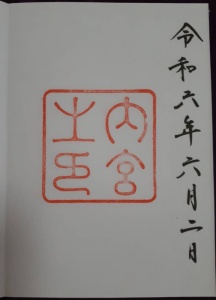 令和六年六月二日
内宮
之印